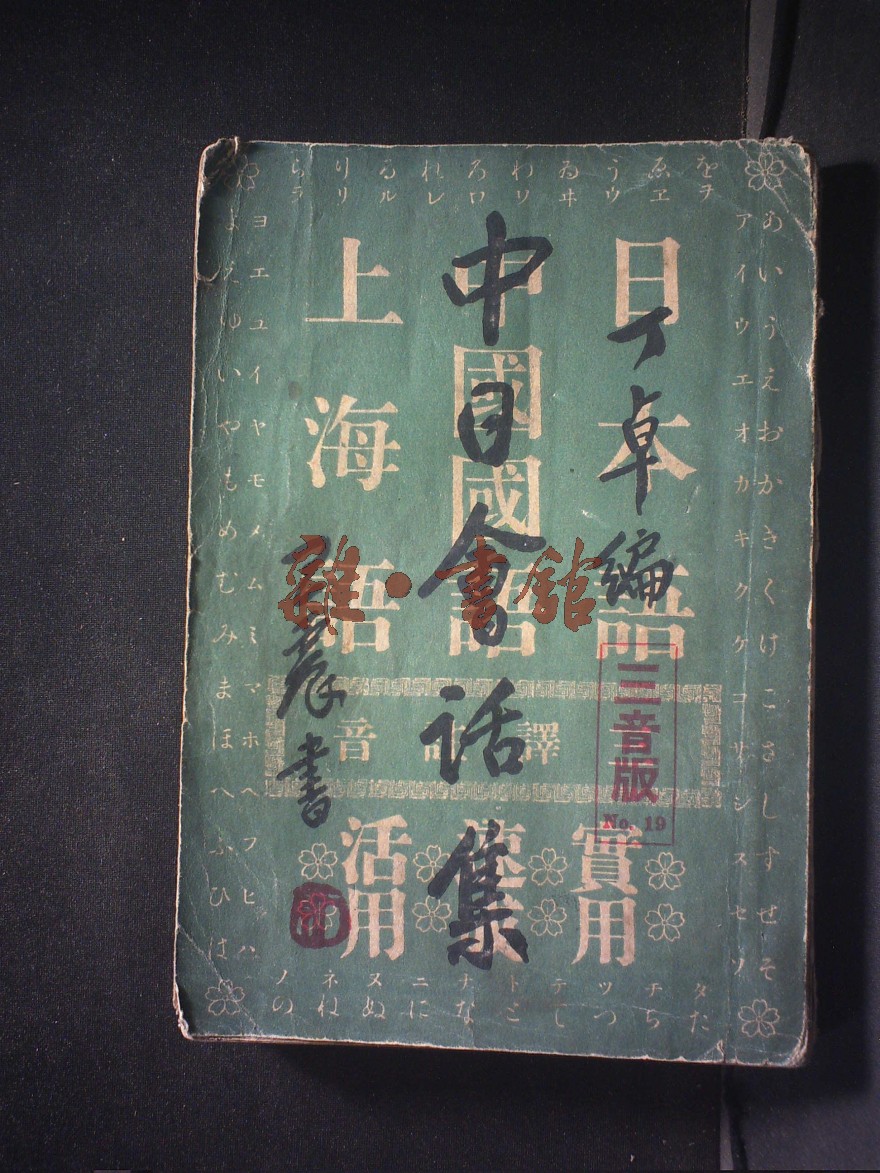 日本語
中國國語
上海語
丁卓編
中日會话集
書
三音版
No. 19
譯
音
實用
活用
雜·書館
あいうえおかきくけこさしすせそ
アイウエオカキクケコサシスセソ
タチツテトナニヌネノ
たちつてとなにぬねの
はひふへほまみむめもやいゆえよ
ハヒフヘホマミムメモヤイユエヨ
らりるれろわゐうゑを
ラリルレロワヰウヱヲ